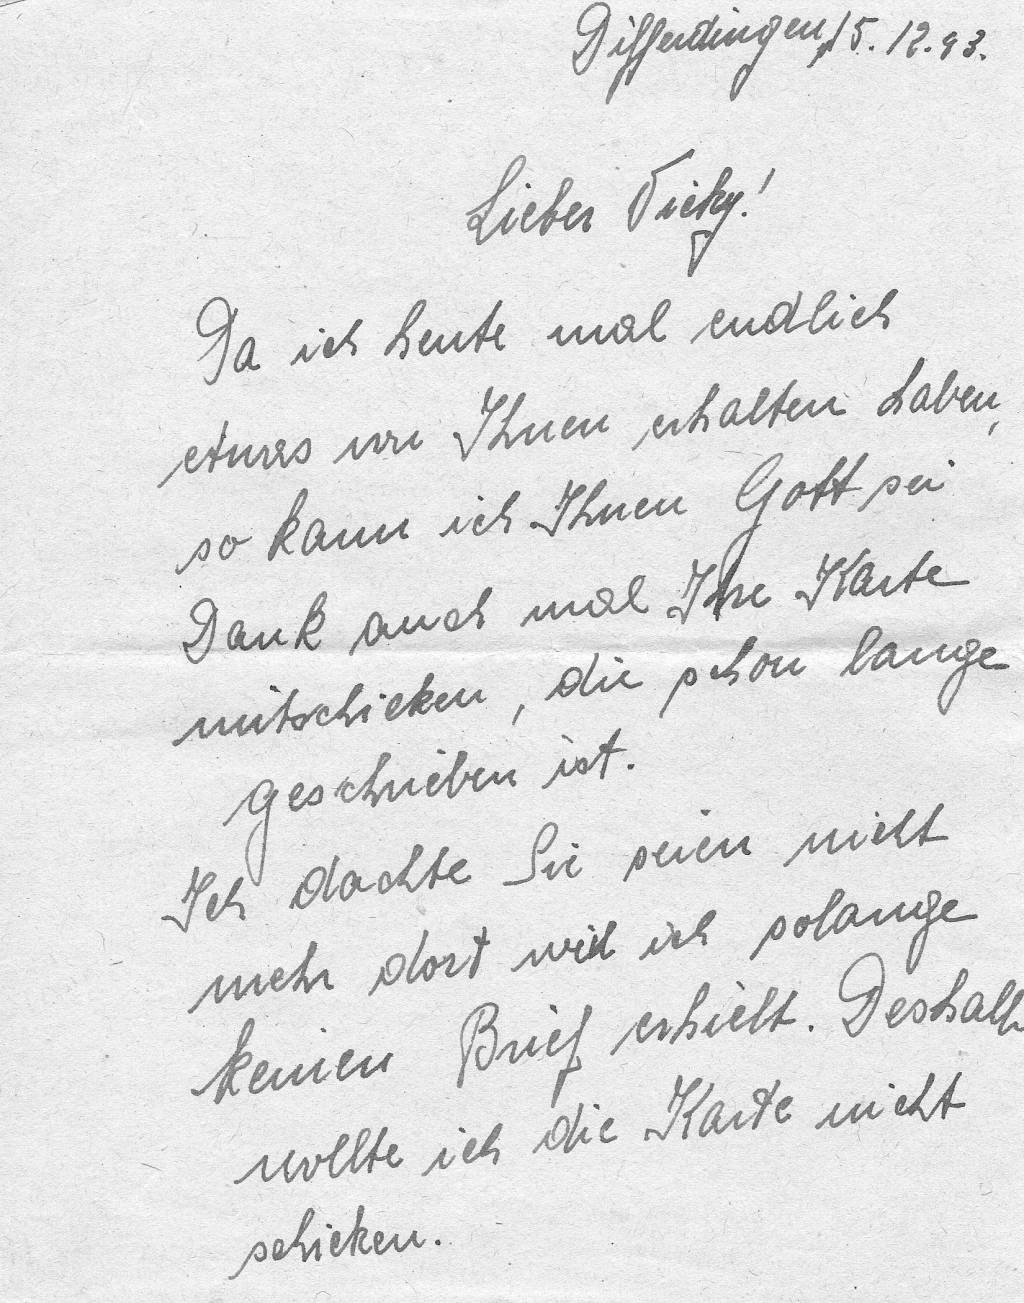 Differdingen, 15.12.43.
Lieber Vicky!
Da ich heute mal endlich
etwas von Ihnen erhalten haben,
so kann ich Ihnen Gott sei
Dank auch mal Ihre Karte
mitschicken, die schon lange
geschrieben ist.
Ich dachte Sie seien nicht
mehr dort weil ich solange
keinen Brief erhielt. Deshalb
wollte ich die Karte nicht
schicken.